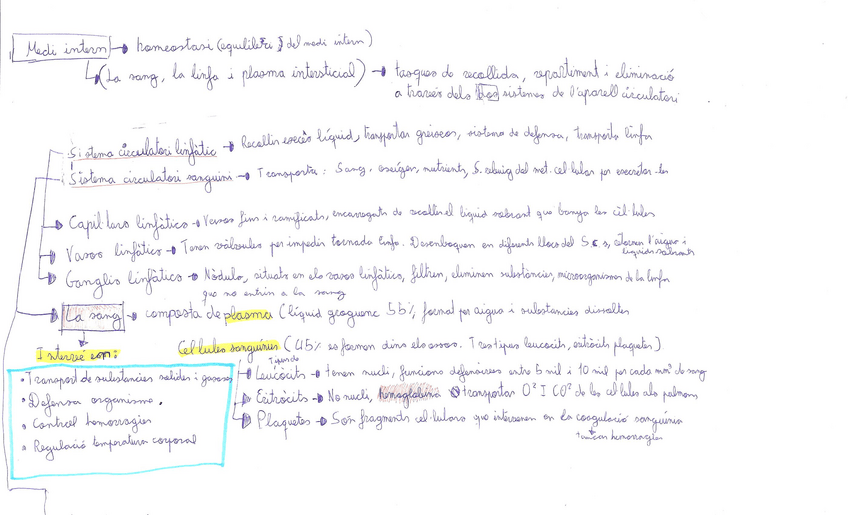 Medi intern → homeostasi (equilibri del medi intern)
(La sang, la limfa i plasma intersticial) → tasques de recollida, repartiment i eliminació
a través dels dos sistemes de l'aparell circulatori
Sistema circulatori limfàtic → Recollir excés líquid, transportar greixos, sistema de defensa, transporta limfa
Sistema circulatori sanguini → Transporta: Sang, oxigen, nutrients, S. rebuig del met. cel·lular per excretar-les
Capil·lars limfàtics → Vasos fins i ramificats, encarregats de recollir el líquid sobrant que banya les cèl·lules
Vasos limfàtics → Tenen vàlvules per impedir tornada limfa. Desemboquen en diferents llocs del S.c.s, retornen l'aigua i
líquids sobrants
Ganglis limfàtics → Nòduls, situats en els vasos limfàtics, filtren, eliminen substàncies, microorganismes de la limfa
que no entrin a la sang
La sang → composta de plasma (líquid groguenc 55% format per aigua i substàncies dissoltes
Intervé en:
Cel·lules sanguínies (45% es formen dins els ossos. Tres tipus leucòcits, eritròcits plaquetes)
• Transport de substàncies solides i gasoses
• Defensa organisme.
• Control hemorràgies
• Regulació temperatura corporal
Leucòcits → tenen nucli, funcions defensives entre 5 mil i 10 mil per cada mm³ de sang
Eritròcits → No nucli, hemoglobina transportar O² I CO² de les cel·lules als pulmons
Plaquetes → Són fragments cel·lulars que intervenen en la coagulació sanguínia
tancar hemorràgies